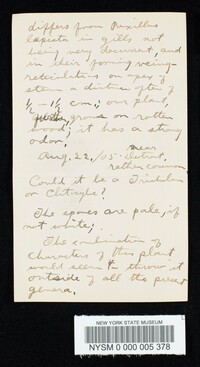 differs from Paxillus
in gills not
being very decurrent, and
in their forming veiny
reticulations on apex of
stem a distance often of
½ - 1½ cm.; our plant,
grows on rotten
wood; it has a strong
odor!
near
Aug. 22, '05 - Detroit,
rather common.
Could it be a
or Clitocybe?
The spores are pale, if
not white;
The combination of
characters of this plant
would seem to throw it
outside of all the present
genera.
NEW YORK STATE MUSEUM
NYSM 0 000 005 378